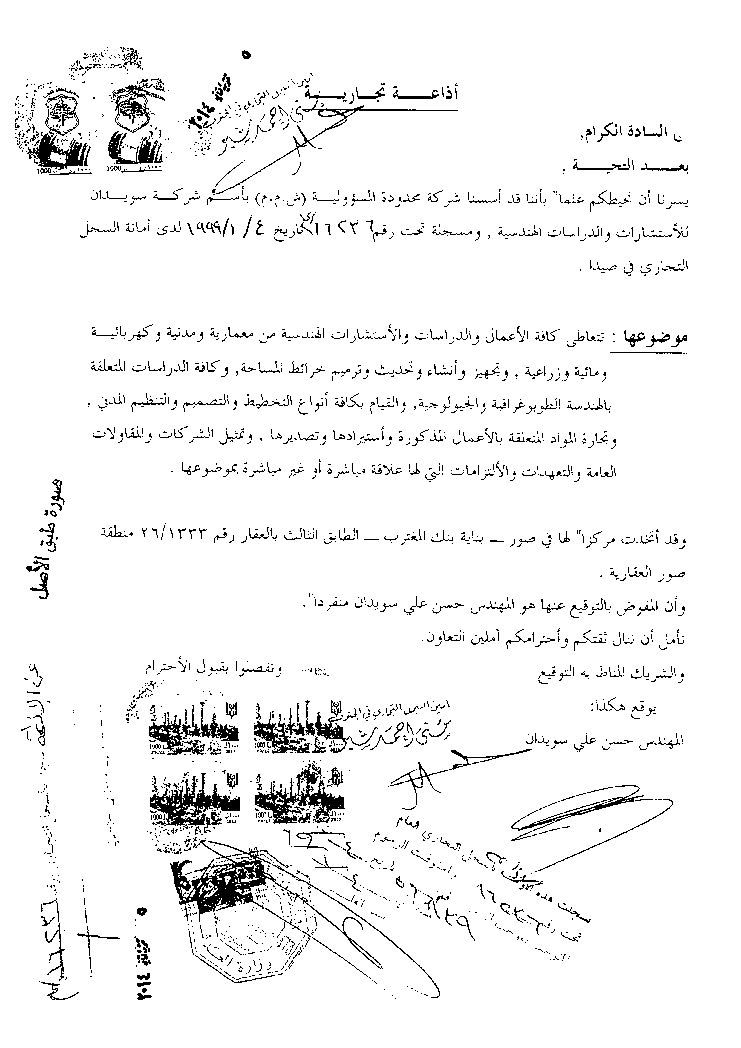 أذاعـــة تجـاريـــة
السادة الكرام,
بعـــد التحيـــة ,
يسرنا أن نحيطكم علما" بأننا قد أسسنا شركة محدودة المسؤولية (ش.م.م) بأســم شركـــة سويـــدان
للأستشارات والدراسات الهندسية , ومسجلة تحت رقم ١٦٢٣٦ بتاريخ ٤ /١/ ١٩٩٩ لدى أمانة السجل
التجاري في صيدا .
موضوعها : تتعاطى كافة الأعمال والدراسات والأستشارات الهندسية من معمارية ومدنية وكهربائيـــة
ومائية وزراعية , وتجهيز وأنشاء وتحديث وترميم خرائط المساحة, وكافة الدراسات المتعلقة
بالهندسة الطوبوغرافية والجيولوجية, والقيام بكافة أنواع التخطيط والتصميم والتنظيم المدني ,
وتجارة المواد المتعلقة بالأعمال المذكورة وأستيرادها وتصديرها , وتمثيل الشركات والمقاولات
العامة والتعهدات والألتزامات التي لها علاقة مباشرة أو غير مباشرة بموضوعها .
وقد أتخذت مركزا" لها في صور ـــ بناية بنك المغترب ـــ الطابق الثالث بالعقار رقم ٢٦/١٣٣٣ منطقة
صور العقارية .
وأن المفوض بالتوقيع عنها هو المهندس حسن علي سويدان منفردا".
نأمل أن ننال ثقتكم وأحترامكم آملين التعاون.
وتفضلوا بقبول الأحترام
والشريك المناط به التوقيع
يوقع هكذا:
المهندس حسن علي سويدان
أمين السجل التجاري في الجنوب
صورة طبق الأصل
٥
٢٠١٤
1000
1000
1000
1000